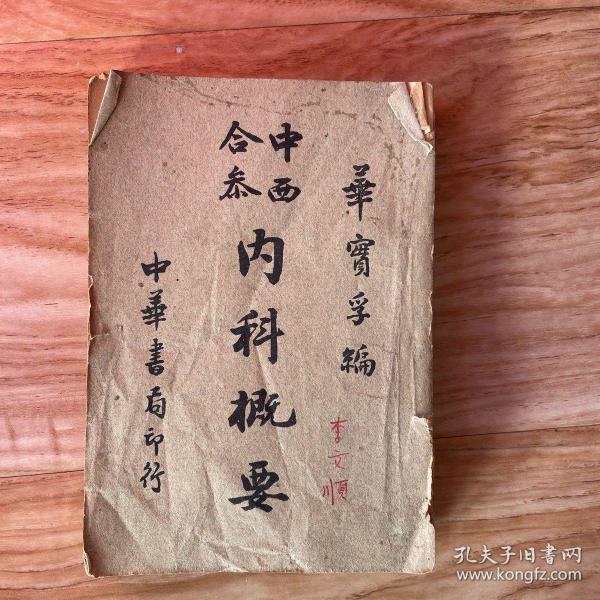 華實孚編
中西
合叅
内科概要
中華書局印行
李文順
孔夫子旧書网
www.kongfz.com